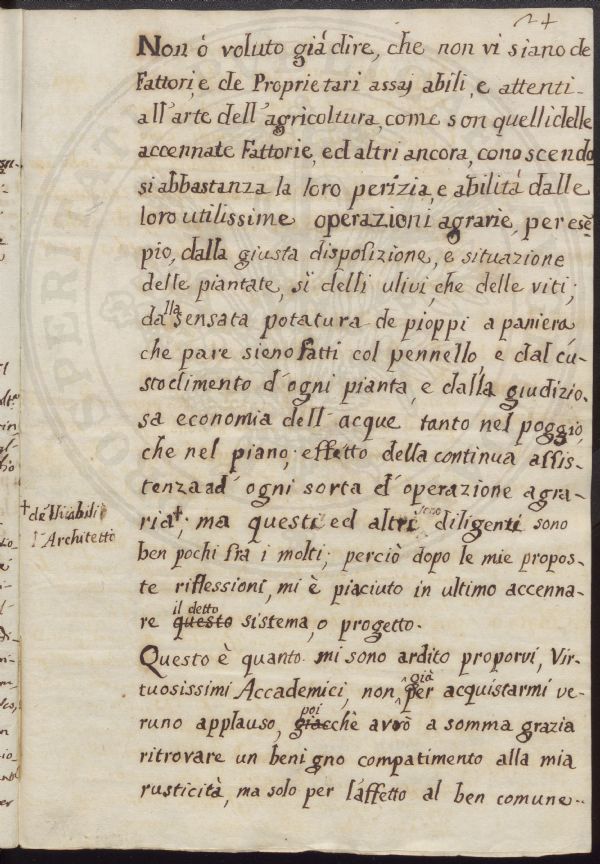 24
Non ò voluto già dire, che non vi siano de
Fattori, e de Proprietari assaj abili, e attenti
all'arte dell'agricoltura, come son quelli delle
accennate Fattorie, ed altri ancora, conoscendo
si abbastanza la loro perizia, e abilità dalle
loro utilissime operazioni agrarie, per esē
pio, dalla giusta disposizione, e situazione
delle piantate, sì delli ulivi, che delle viti;
dalla sensata potatura de pioppi a paniera
che pare sieno fatti col pennello e dal cu-
stodimento d'ogni pianta, e dalla giudizio-
sa economia dell'acque tanto nel poggio,
che nel piano; effetto della continua assis-
tenza ad ogni sorta d'operazione agra-
ria+; ma questi ed altri diligenti sono
+ de
l'Architetto
ben pochi fra i molti; perciò dopo le mie propos-
te riflessioni, mi è piaciuto in ultimo accenna-
il detto
re questo sistema, o progetto.
Questo è quanto mi sono ardito proporvi, Vir-
già
tuosissimi Accademici, non per acquistarmi ve-
poi
runo applauso, giacchè avrò a somma grazia
ritrovare un benigno compatimento alla mia
rusticità, ma solo per l'affetto al ben comune..